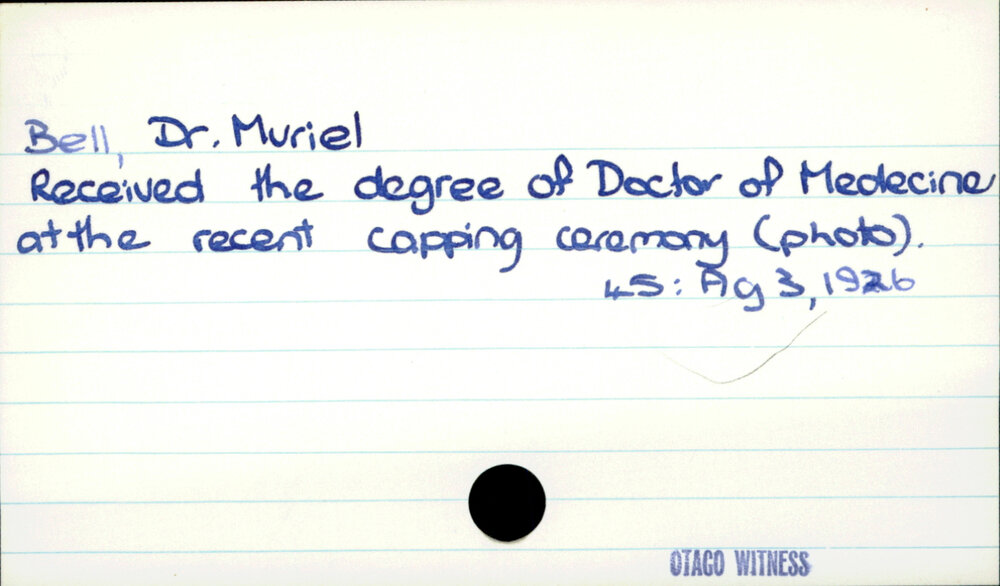 Bell, Dr. Muriel
Received the degree of Doctor of Medecine
at the recent capping ceremony (photo).
45: Ag 3, 1926
OTAGO WITNESS